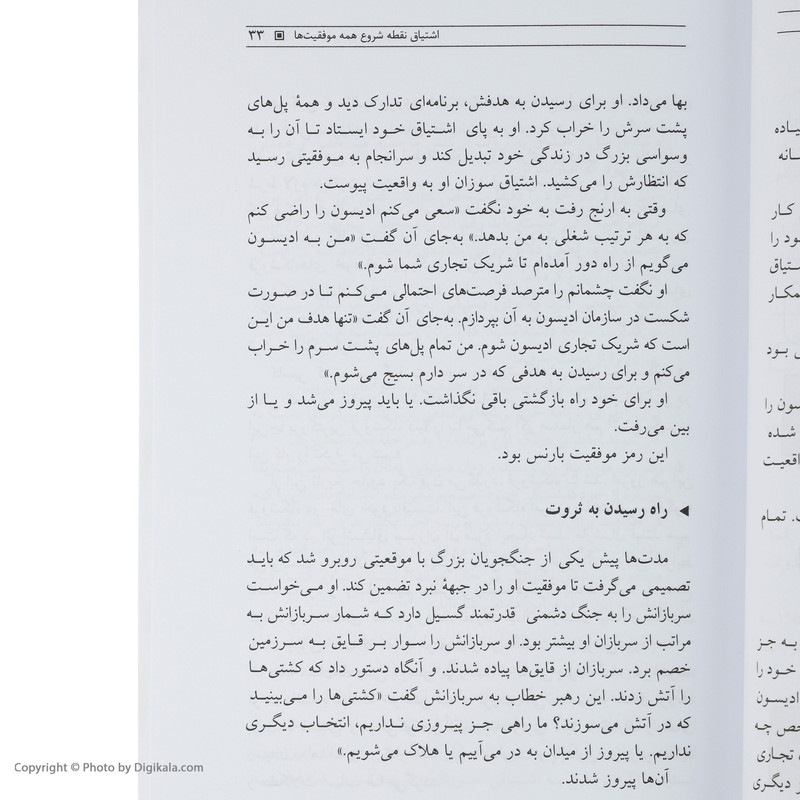 اشتیاق نقطه شروع همه موفقیت‌ها ۳۳
بها می‌داد. او برای رسیدن به هدفش، برنامه‌ای تدارک دید و همهٔ پل‌های
پشت سرش را خراب کرد. او به پای اشتیاق خود ایستاد تا آن را به
وسواسی بزرگ در زندگی خود تبدیل کند و سرانجام به موفقیتی رسید
که انتظارش را می‌کشید. اشتیاق سوزان او به واقعیت پیوست.
وقتی به ارنج رفت به خود نگفت «سعی می‌کنم ادیسون را راضی کنم
که به هر ترتیب شغلی به من بدهد.» به‌جای آن گفت «من به ادیسون
می‌گویم از راه دور آمده‌ام تا شریک تجاری شما شوم.»
او نگفت چشمانم را مترصد فرصت‌های احتمالی می‌کنم تا در صورت
شکست در سازمان ادیسون به آن بپردازم. به‌جای آن گفت «تنها هدف من این
است که شریک تجاری ادیسون شوم. من تمام پل‌های پشت سرم را خراب
می‌کنم و برای رسیدن به هدفی که در سر دارم بسیج می‌شوم.»
او برای خود راه بازگشتی باقی نگذاشت. یا باید پیروز می‌شد و یا از
بین می‌رفت.
این رمز موفقیت بارنس بود.
◀ راه رسیدن به ثروت
مدت‌ها پیش یکی از جنگجویان بزرگ با موقعیتی روبرو شد که باید
تصمیمی می‌گرفت تا موفقیت او را در جبههٔ نبرد تضمین کند. او می‌خواست
سربازانش را به جنگ دشمنی قدرتمند گسیل دارد که شمار سربازانش به
مراتب از سربازان او بیشتر بود. او سربازانش را سوار بر قایق به سرزمین
خصم برد. سربازان از قایق‌ها پیاده شدند. و آنگاه دستور داد که کشتی‌ها
را آتش زدند. این رهبر خطاب به سربازانش گفت «کشتی‌ها را می‌بینید
که در آتش می‌سوزند؟ ما راهی جز پیروزی نداریم، انتخاب دیگری
نداریم. یا پیروز از میدان به در می‌آییم یا هلاک می‌شویم.»
آن‌ها پیروز شدند.
Copyright © Photo by Digikala.com